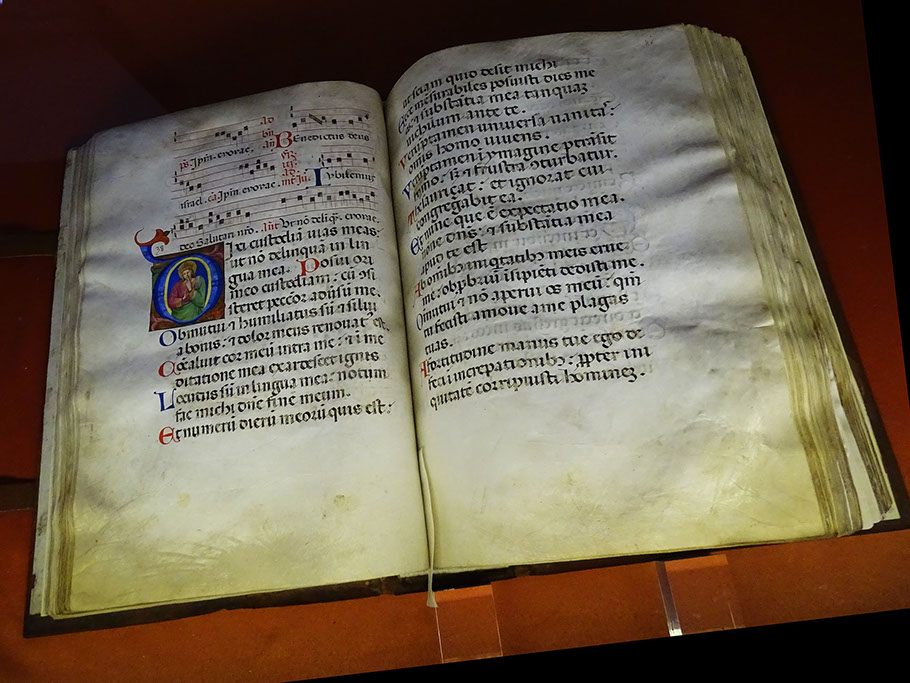 Benedictus deus
israel.
deo salutari nro. Ant Ut nõ delinq̃. evovae.
38
Dixi custodiã vias meas:
ut nõ delinquã in lin
gua mea. Posui ori
meo custodiam: cũ cõsi
steret peccor adũsũ me.
Obmutui ⁊ humiliatus sũ ⁊ silui
a bonis: ⁊ dolor meus renovatꝰ est.
Cõcaluit cor meũ intra me: ⁊ ĩ me
ditatione mea exardescet ignis
Locutus sũ in lingua mea: notum
fac michi dñe finem meum.
Et numerũ dierũ meorũ quis est:
ut sciam quid desit michi
Ecce mesurabiles posuisti dies me
os: ⁊ substãtia mea tanquaz
nichilum ante te.
Verũptamen universa vanitaꝰ:
omnis homo vivens.
Verũptamen ĩ ymagine ptrãsit
homo: sꝫ ⁊ frustra ↄturbatur.
Thesauriçat: et ignorat cui
congregabit ea.
Et nunc que ẽ expectatio mea.
none dñs: ⁊ substãtia mea
apud te est
Ab oĩnibꝰ iniqtatibꝰ meis erue
me: obpbrũm ĩsipiẽti dedisti me.
Omutui ⁊ nõ aperui os meũ: qm̃
tu fecisti amove a me plagas
tuas.
A fortitudine manus tue ego de
feci ĩ increpationibꝰ: ꝓpter ini
quitatẽ corripuisti hominez.